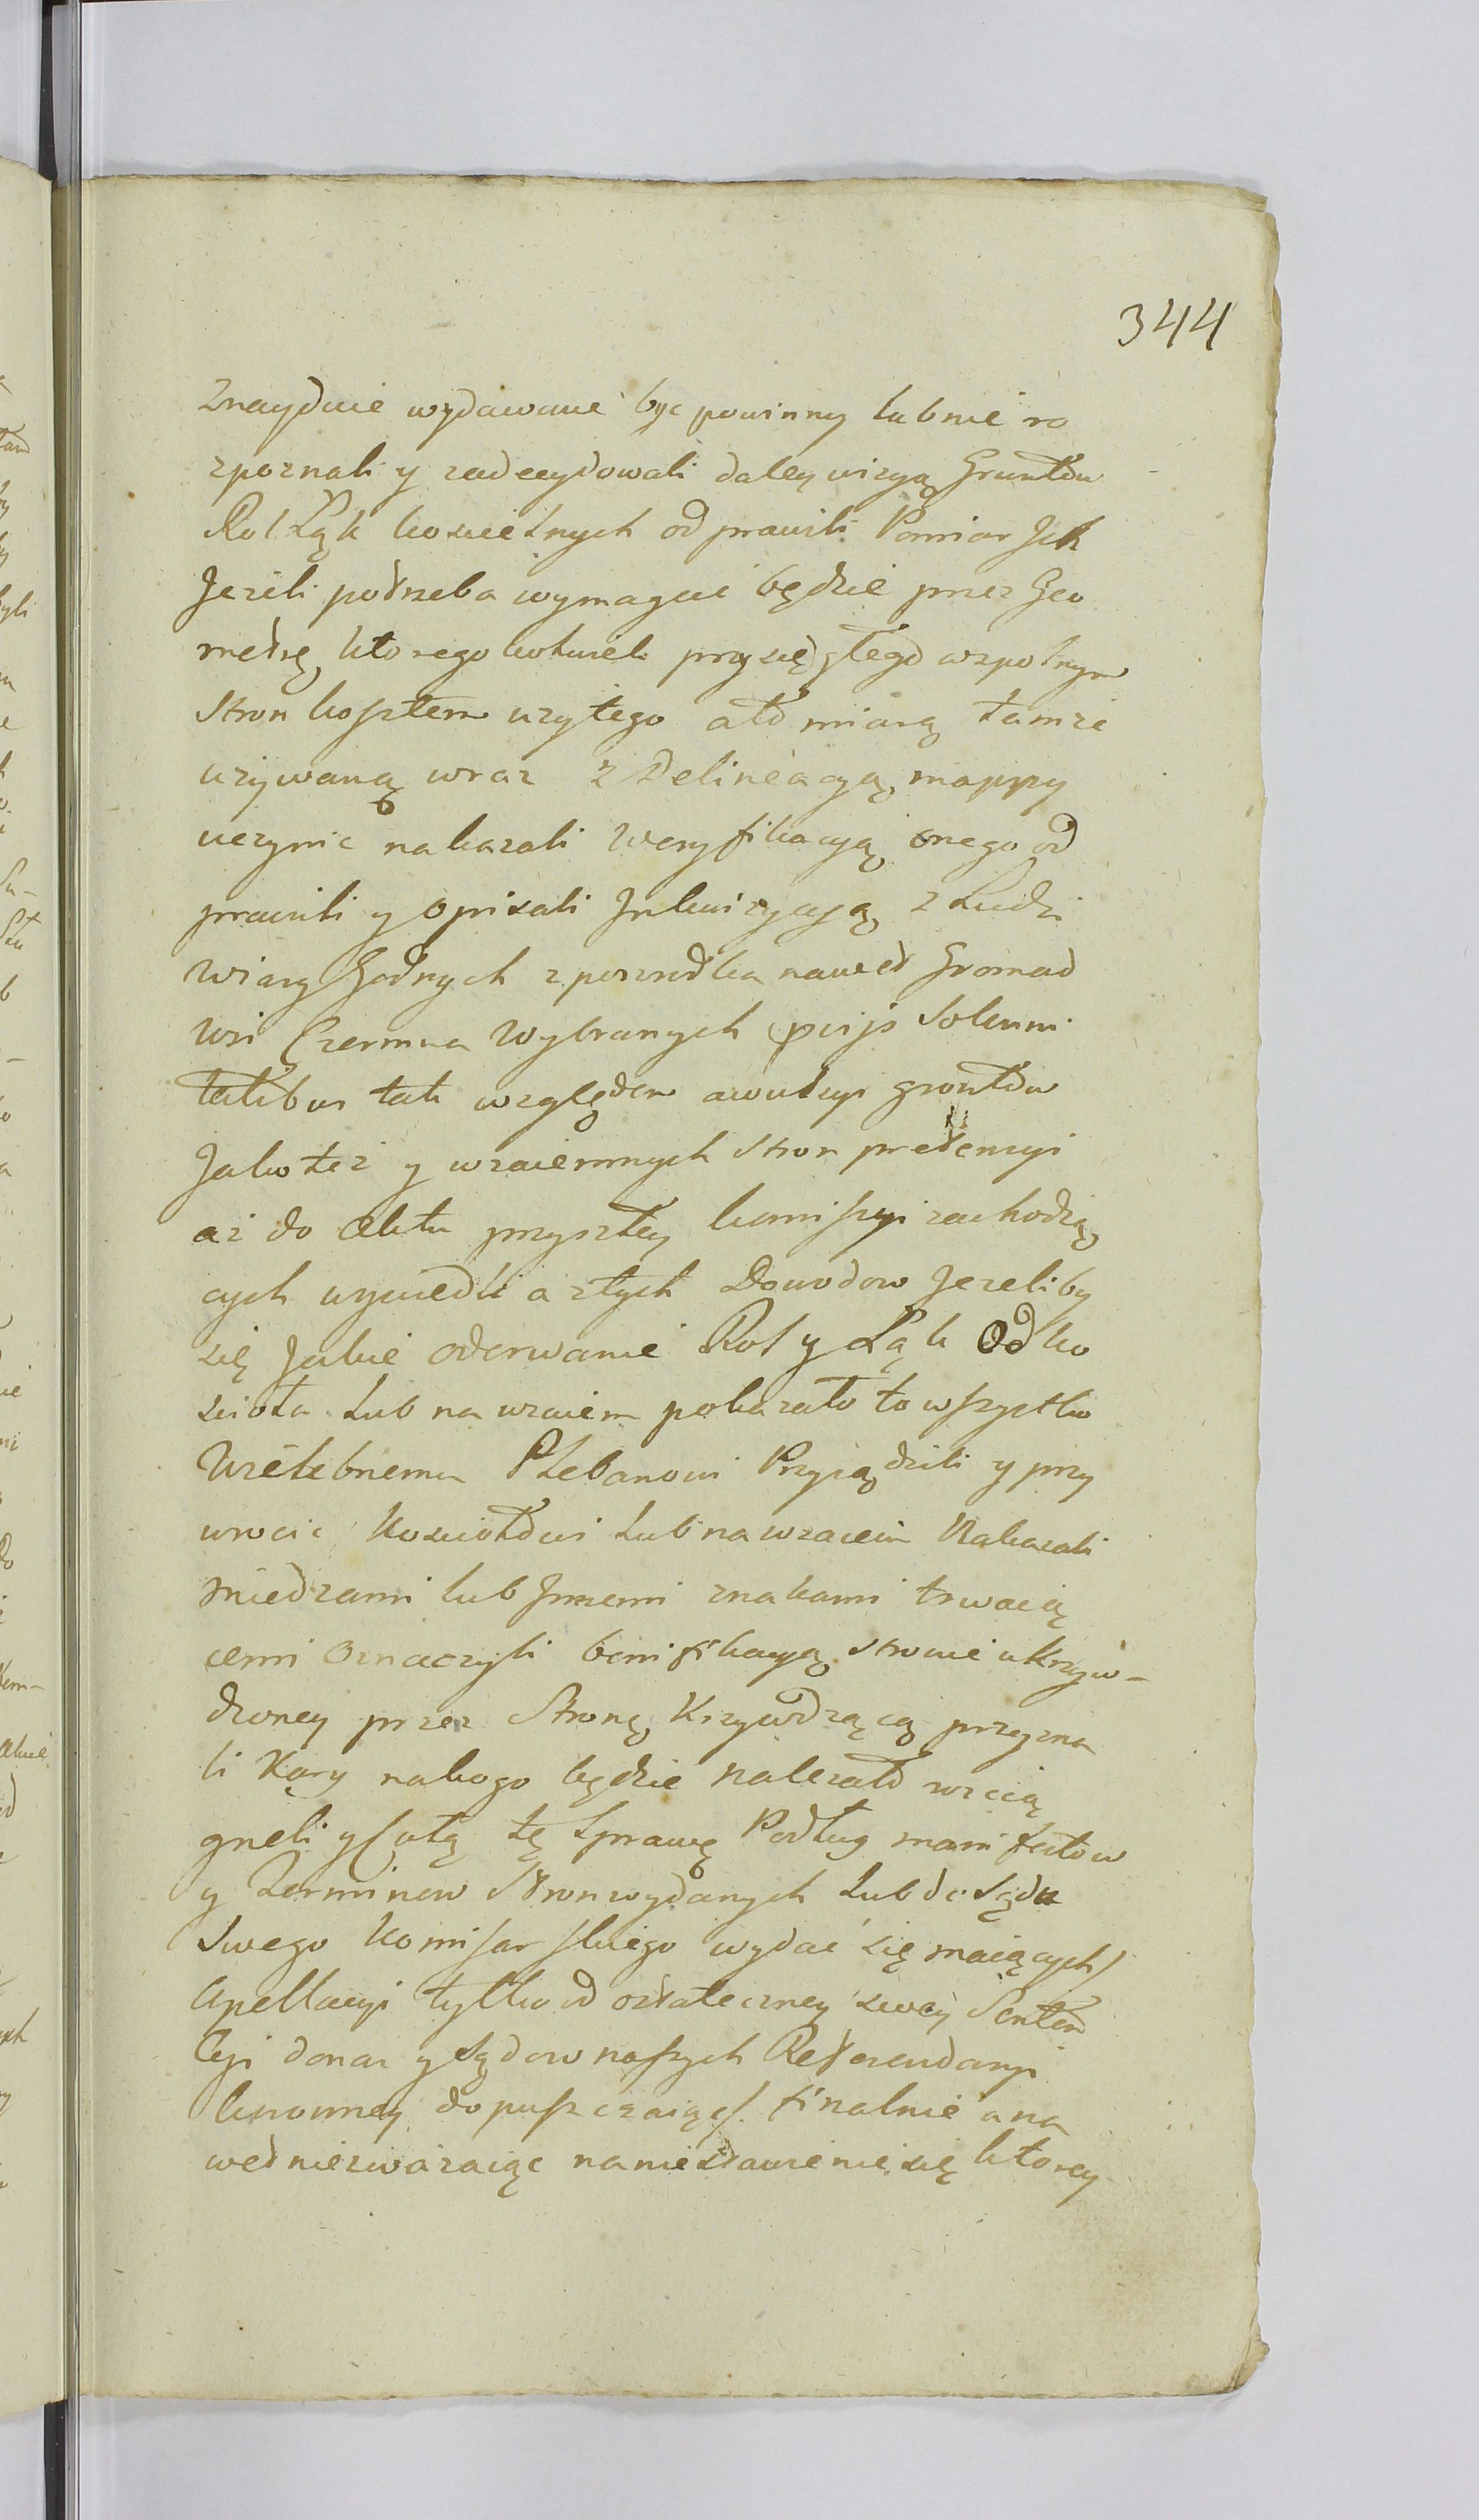 344
Znayduie wydawane byc powinny lub nie ro
zpoznali y zadecydowali daley wizyą Gruntow
Rol Łąk koscielnych odprawili Pomiar Ich
Jezeli potrzeba wymagac będzie przez Geo
metrę ktorego kolwiek przysięgłego wspolnym
Stron kosztem uzytego ato miarą tamze
uzywaną wraz z Delineacyą mappy
uczynic nakazali weryfikacyą onego od
prawili y opisali Inkwizycyą z Ludzi
Wiary Godnych zposrodka nawet Gromad
Wsi Czermna Wybranych Solenni
tatibus tak względem awulsyi grontow
Jako tez y wzaiemnych Stron pretensyi
az do Aktu przyszłey komiſsyi zachodzą
cych wywiedli a ztych Dowodow Jezeliby
się Jakie oderwanie Rol y Łąk Od ko
sciola Lub na wzaiem pokazało to wſzystko
Wielebnemu Plebanowi Przysądzili y przy
wrocic Kosciołowi Lub na wzaiem Nakazali
miedzami lub Jnnemi znakami trwaią
cemi Oznaczyli bonifikacyą stronie ukrzyw-
dzoney przez Stronę Krzywdzącą przyzna
li Kary nakogo będzie nalezało wscią
gneli y Całą tę Sprawę Podług manifestow
y Terminow Stron wydanych Lub do Sądu
Swego Komiſarſkiego wydać się maiących /
Apellacyi tylko od ostateczney swey Senten
Cyi donas y Sądow naſzych Referendaryi
koronney dopuſzczaiąc /. finalnie a na
wet niezwazaiąc na niestawienie się ktorey